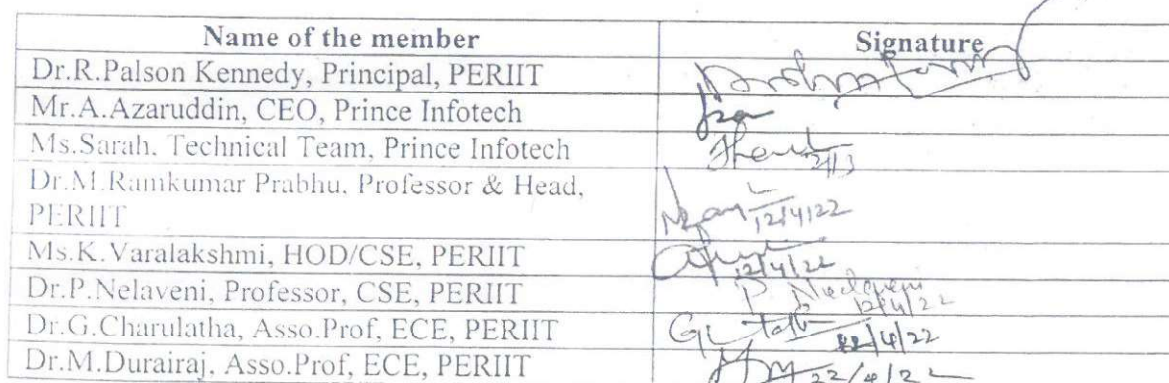 Name of the member Signature
Dr.R.Palson Kennedy, Principal, PERIIT
Mr.A.Azaruddin, CEO, Prince Infotech
Ms.Sarah, Technical Team, Prince Infotech
Dr.M.Ramkumar Prabhu, Professor & Head,
PERIIT 12/4/22
Ms.K.Varalakshmi, HOD/CSE, PERIIT 12/4/22
Dr.P.Nelaveni, Professor, CSE, PERIIT P. Neelaveni 12/4/22
Dr.G.Charulatha, Asso.Prof, ECE, PERIIT
Dr.M.Durairaj, Asso.Prof, ECE, PERIIT 22/4/22